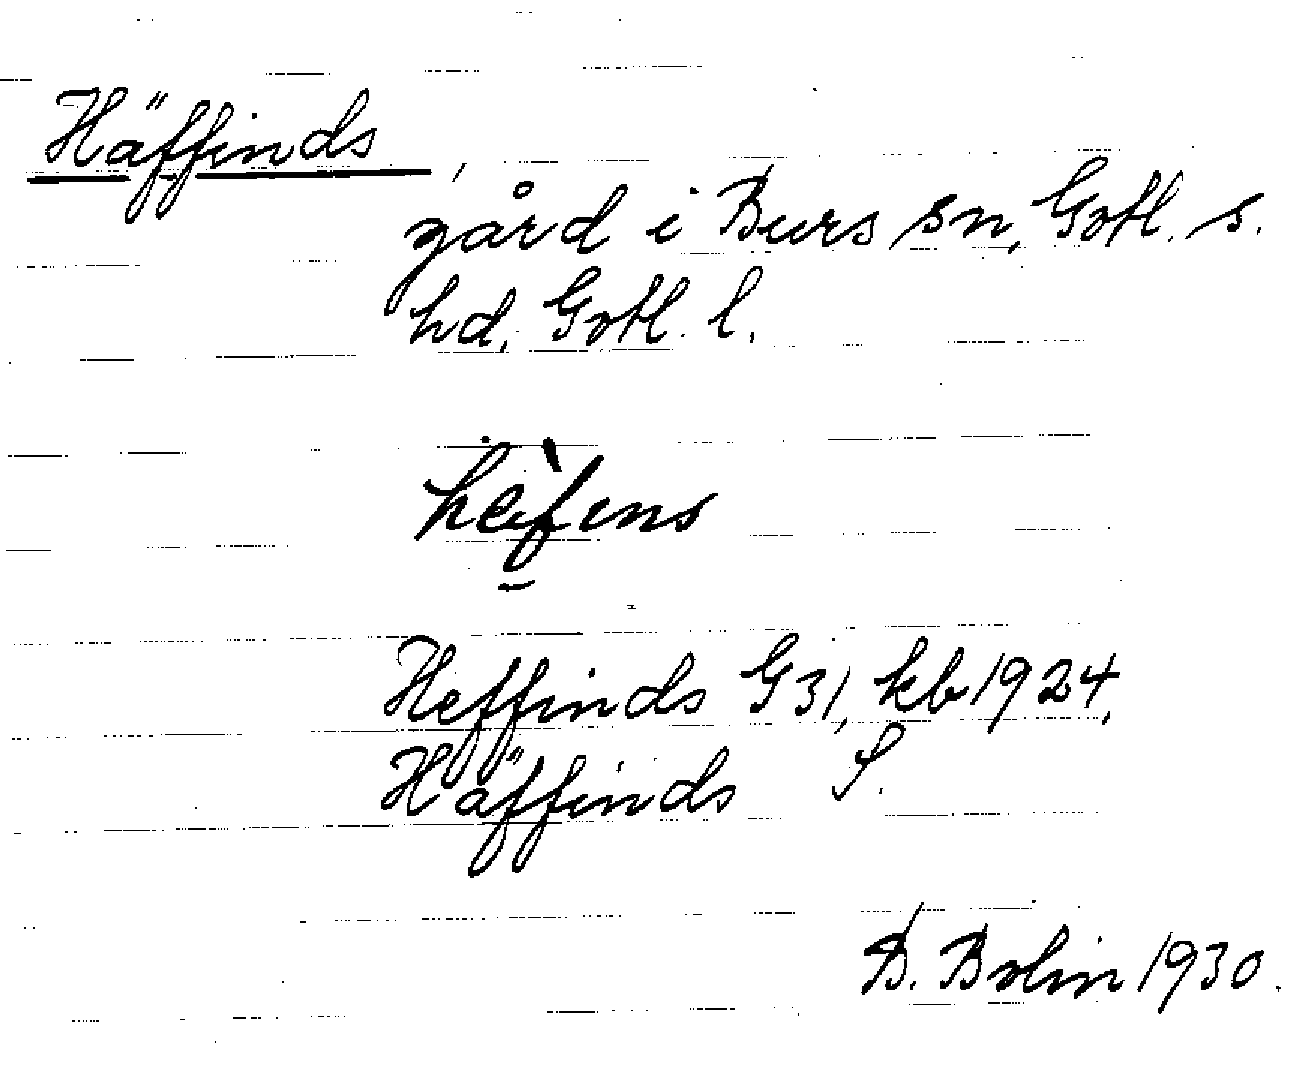 Häffinds,
gård i Burs sn, Gotl. s.
hd, Gotl. l.
Heffinds G 31, kb 1924,
Häffinds S.
D. Bolin 1930.